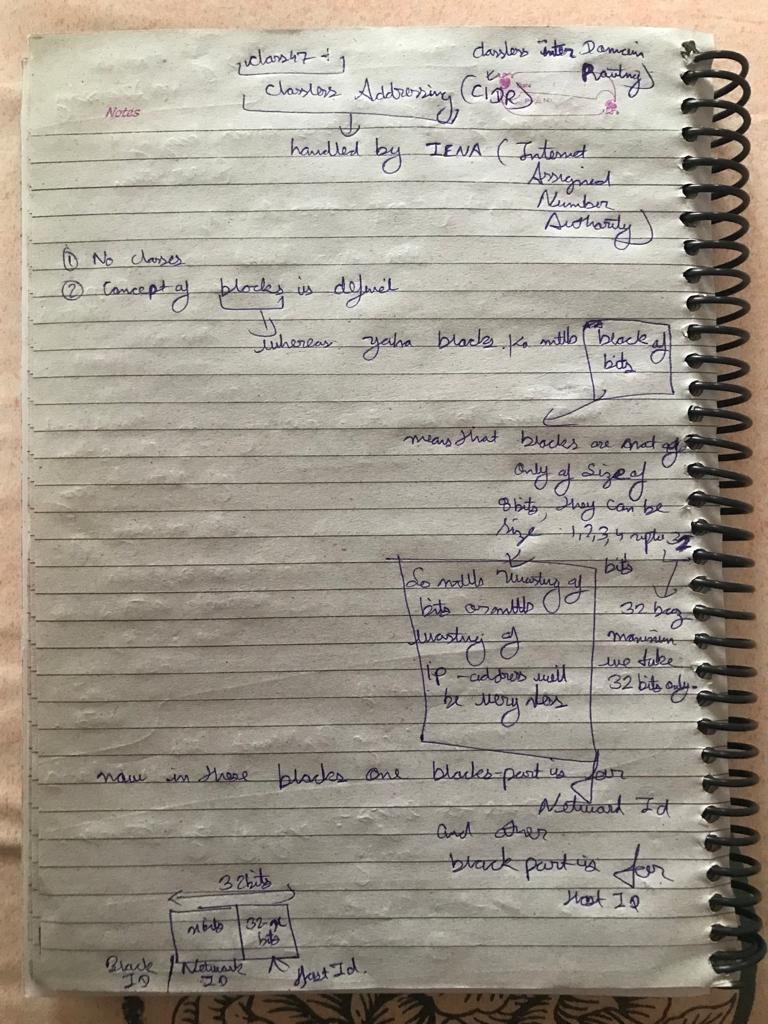 class 47 :-
classless inter Domain
Routing)
Classless Addressing (CIDR)
Notes
handled by IENA ( Internet
Assigned
Number
Authority)
① No classes
② Concept of blocks is defined
whereas yaha blocks ka mtlb block of
bits
means that blocks are not of
only of size of
8 bits, they can be
size 1,2,3,4 upto 32
bits
So mtlb wasting of
bits or mtlb
wasting of
ip-address will
be very less
32 bcz
maximum
we take
32 bits only.
now in these blocks one blocks-part is for
Network Id
and other
block part is for
Host ID
32 bits
n bits
32-n
bits
Block
ID
Network
ID
Host Id.